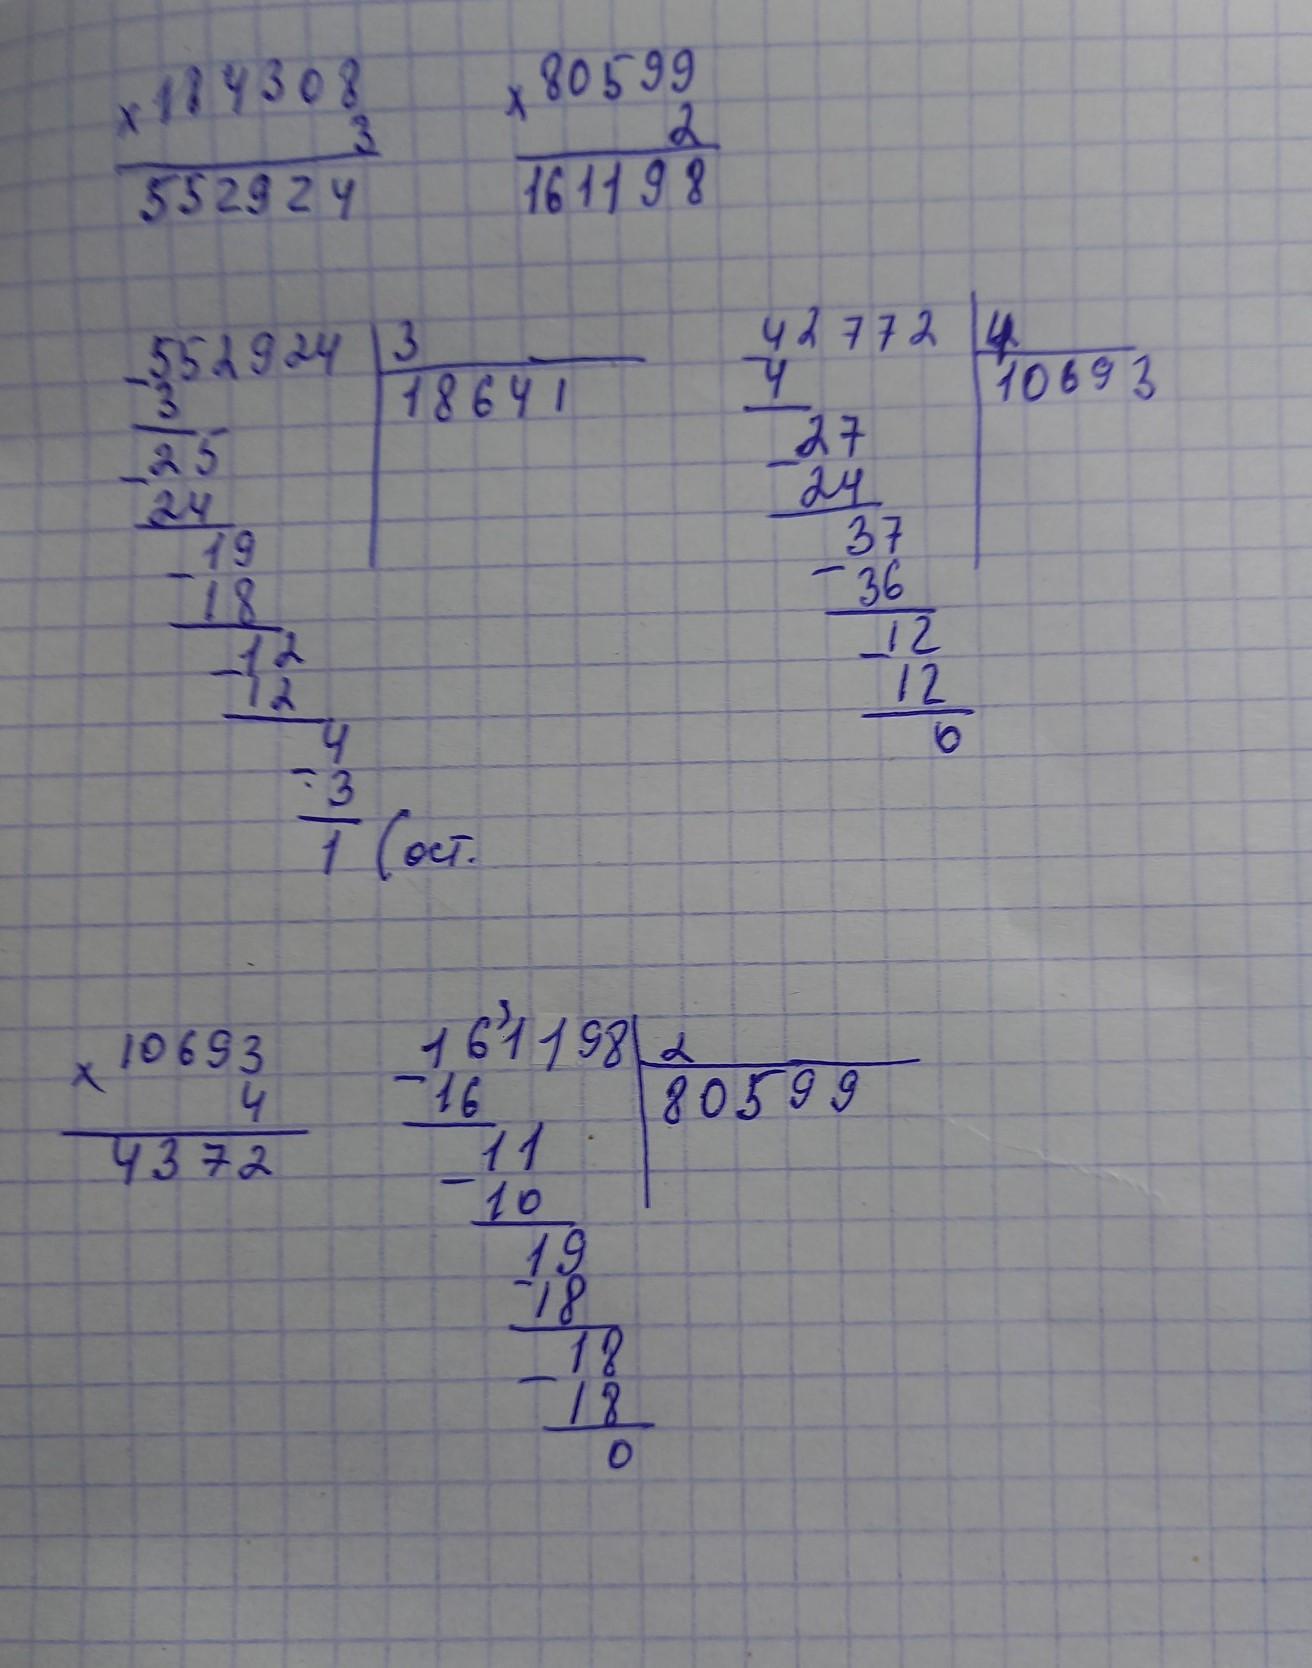 × 184308
3
552924
× 80599
2
161198
- 552924 | 3
3
18641
- 25
24
- 19
18
- 12
12
4
- 3
1 (ост.
- 42772 | 4
4
10693
- 27
24
- 37
36
- 12
12
0
× 10693
4
4372
- 161198 | 2
3
16
80599
- 11
10
- 19
18
- 18
18
0